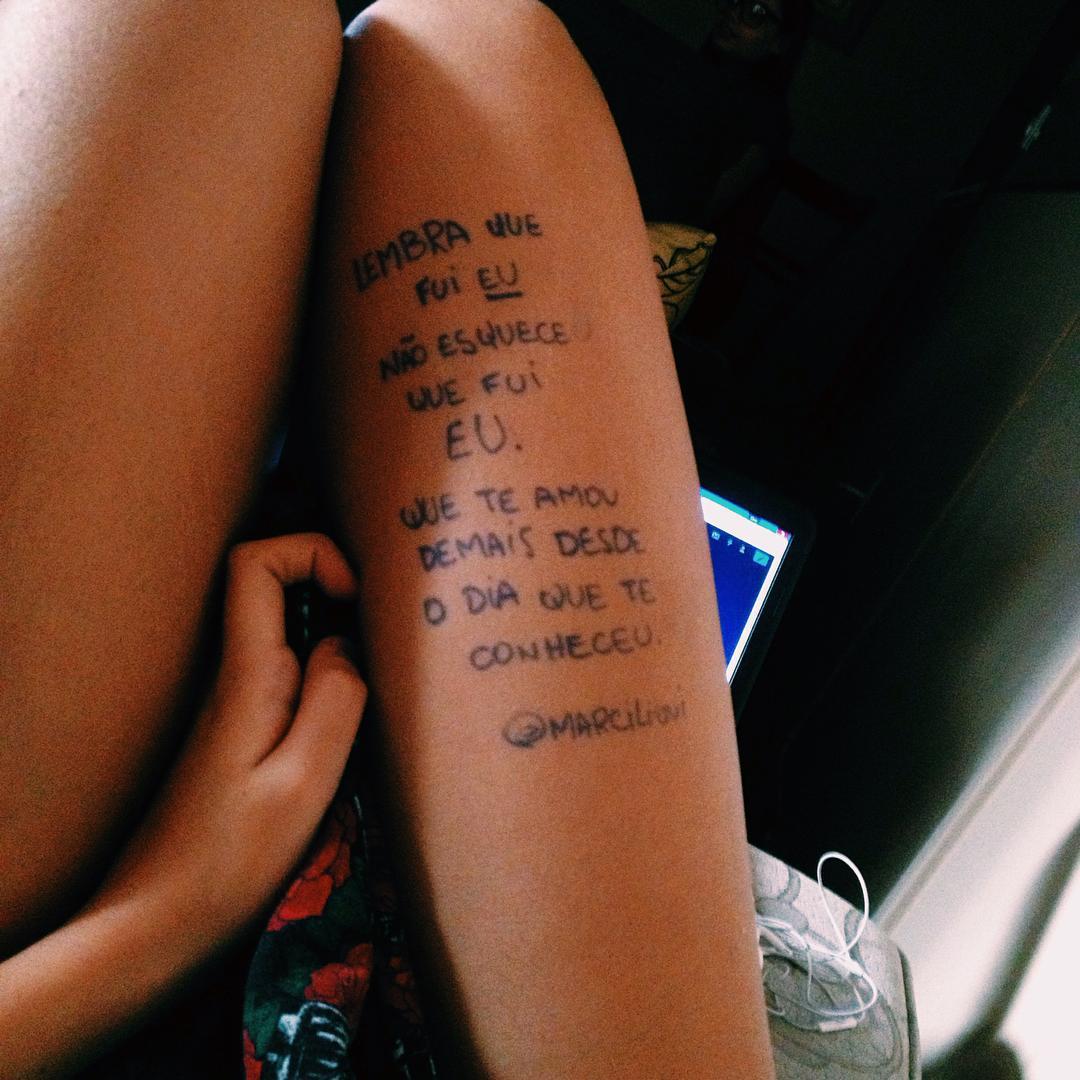 LEMBRA QUE
FUi EU
NÃO ESQUECE
QUE FUi
EU.
QUE TE AMOU
DEMAiS DESDE
O DiA QUE TE
CONHECEU.
@MARCiLiOVi